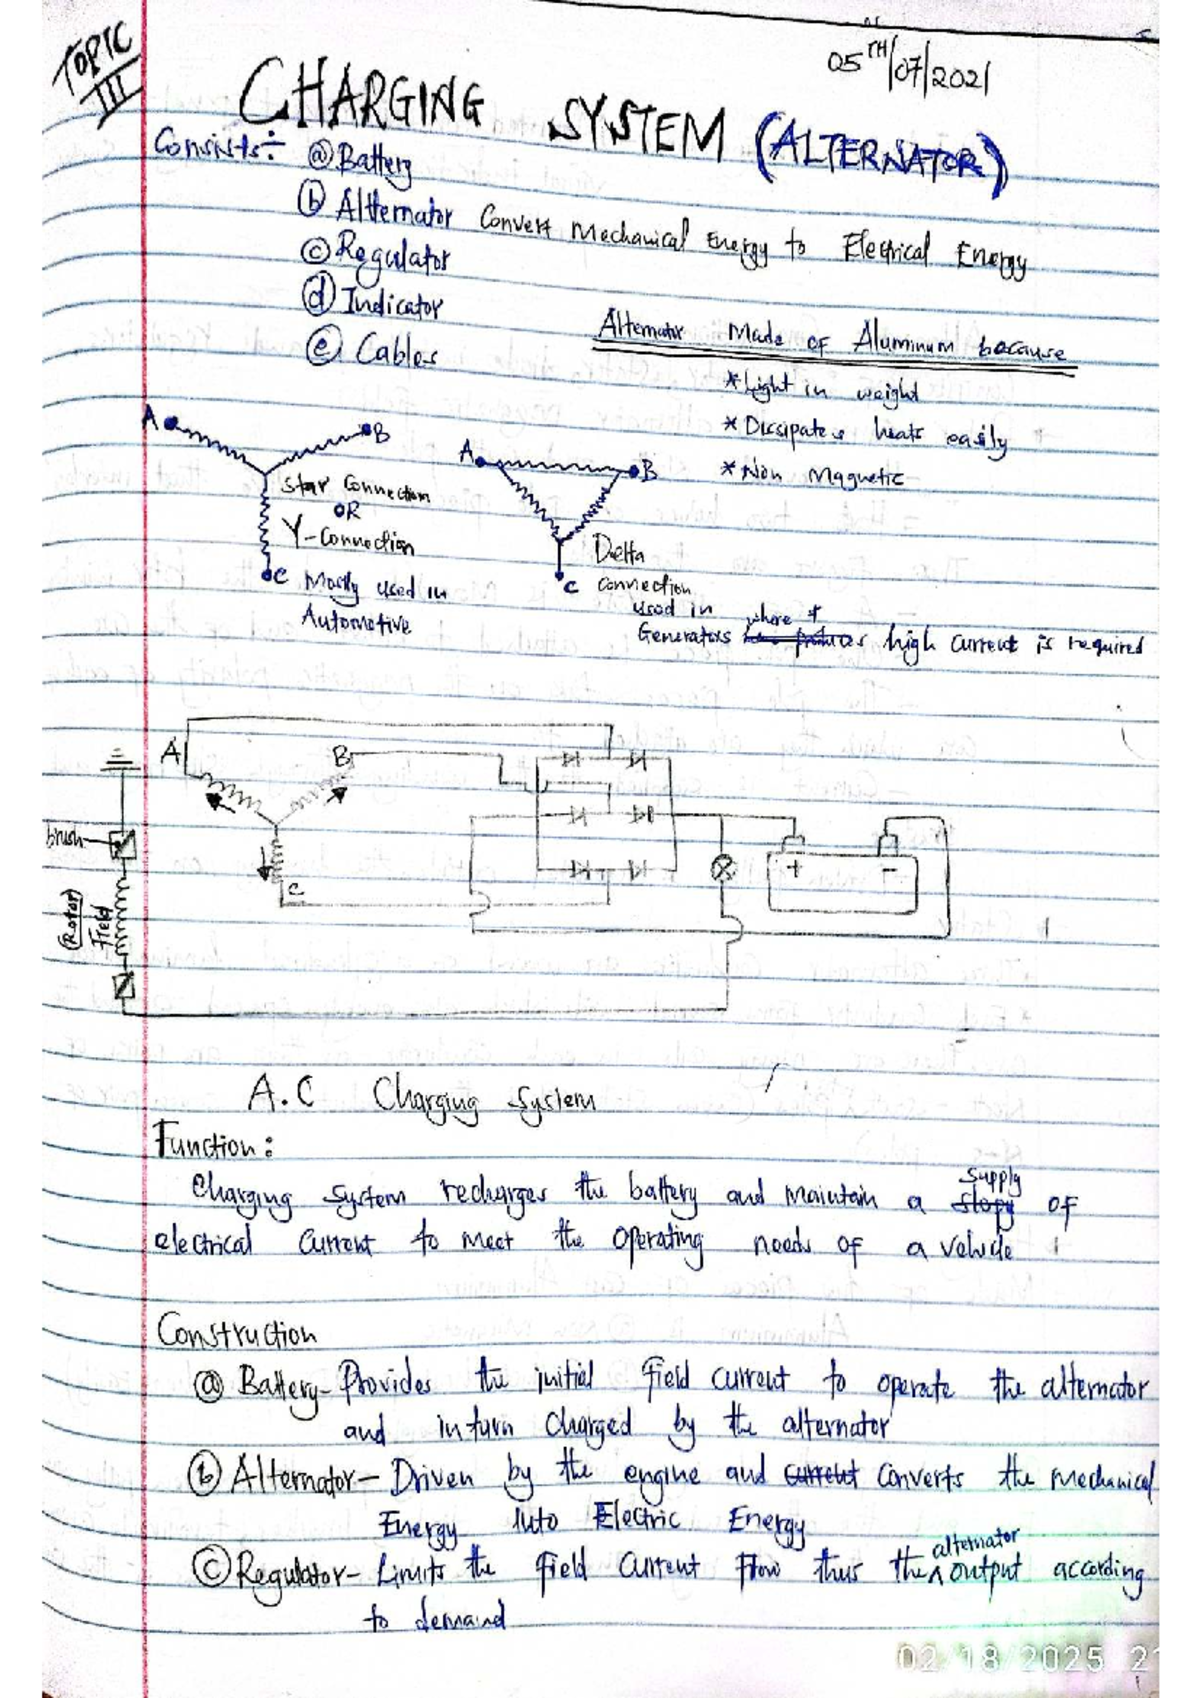 TOPIC III
05TH/07/2021
CHARGING SYSTEM (ALTERNATOR)
Consists:- (a) Battery
(b) Alternator Convert Mechanical Energy to Electrical Energy
(c) Regulator
(d) Indicator
(e) Cables
Alternator Made of Aluminum because
* Light in weight
* Dissipates heats easily
* Non Magnetic
A
B
Star Connection
OR
Y-Connection
C Mostly used in
Automotive
A
B
Delta
C Connection
used in
Generators where high current is required
A
B
C
brush
(Rotor)
Field
+ -
A.C Charging System
Function:
Charging System recharges the battery and maintain a supply of
electrical current to meet the operating needs of a vehicle
Construction
(a) Battery- Provides the initial field current to operate the alternator
and inturn charged by the alternator
(b) Alternator- Driven by the engine and current converts the mechanical
Energy Into Electric Energy
(c) Regulator- Limits the field current flow thus the alternator output according
to demand
02/18/2025 2